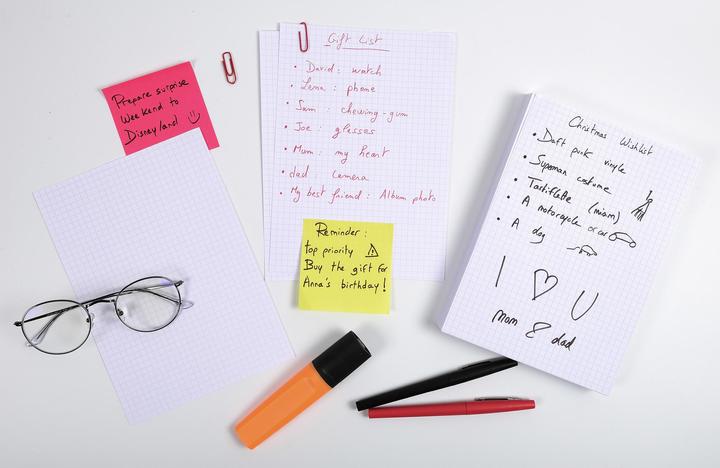 Prepare surprise
Weekend to
Disneyland
Gift List
• David : watch
• Lena : phone
• Sam : chewing-gum
• Joe : glasses
• Mum : my heart
• dad camera
• My best friend : Album photo
Reminder :
top priority
Buy the gift for
Anna's birthday !
Christmas Wishlist
• Daft punk vinyle
• Superman costume
• Tartiflette (miam)
• A motorcycle or car
• A dog
I ♡ U
Mom & dad